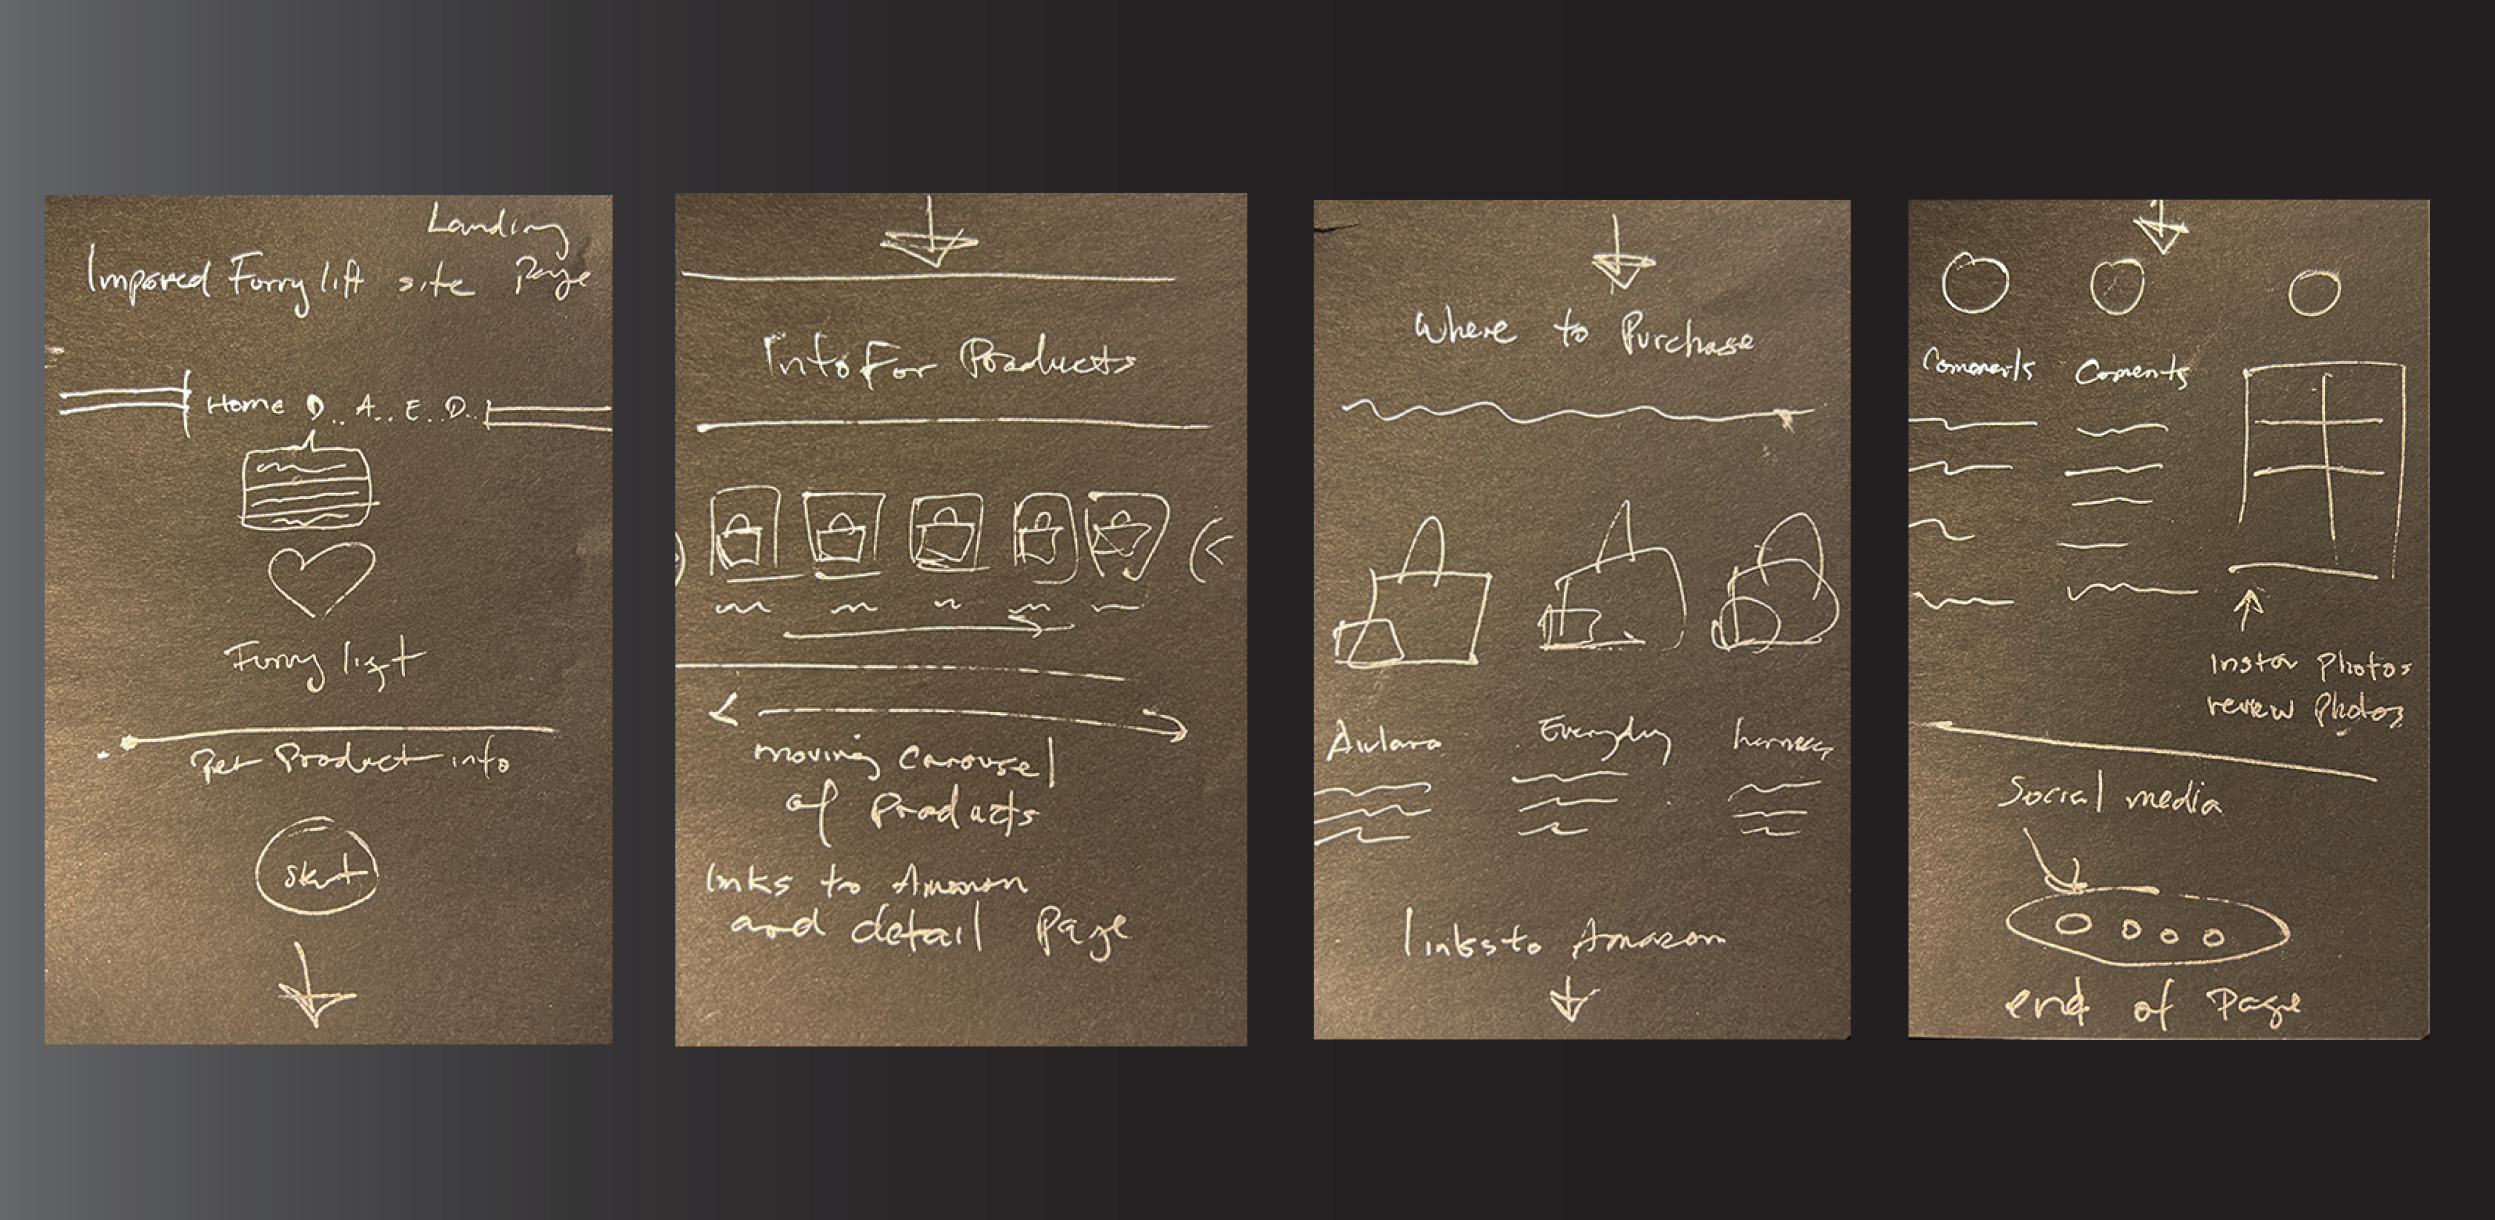 Landing
Impored Furry lift site Page
Home D.. A.. E.. D..
Furry ligt
Pet Product info
Start
Info For Products
moving Carousel
of Products
links to Amazon
and detail Page
Where to Purchase
Everyday harness
links to Amazon
Comments Coments
Insta Photos
review Photos
Social media
end of Page